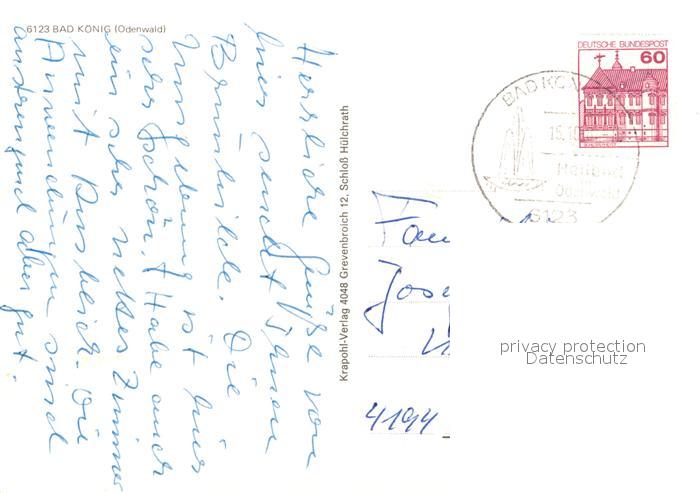 6123 BAD KÖNIG (Odenwald)
Herzliche Grüße von
hier sendet Ihnen
Brunhilde. Die
Umgebung ist hier
sehr schön. Habe auch
ein sehr nettes Zimmer
mit Ausblick. Die
Anwendungen sind
anstrengend aber gut.
Krapohl-Verlag 4048 Grevenbroich 12, Schloß Hülchrath
DEUTSCHE BUNDESPOST
60
BAD KÖNIG
15.10
Heilbad
Odenwald
6123
Fam
Jose
4194
privacy protection
Datenschutz